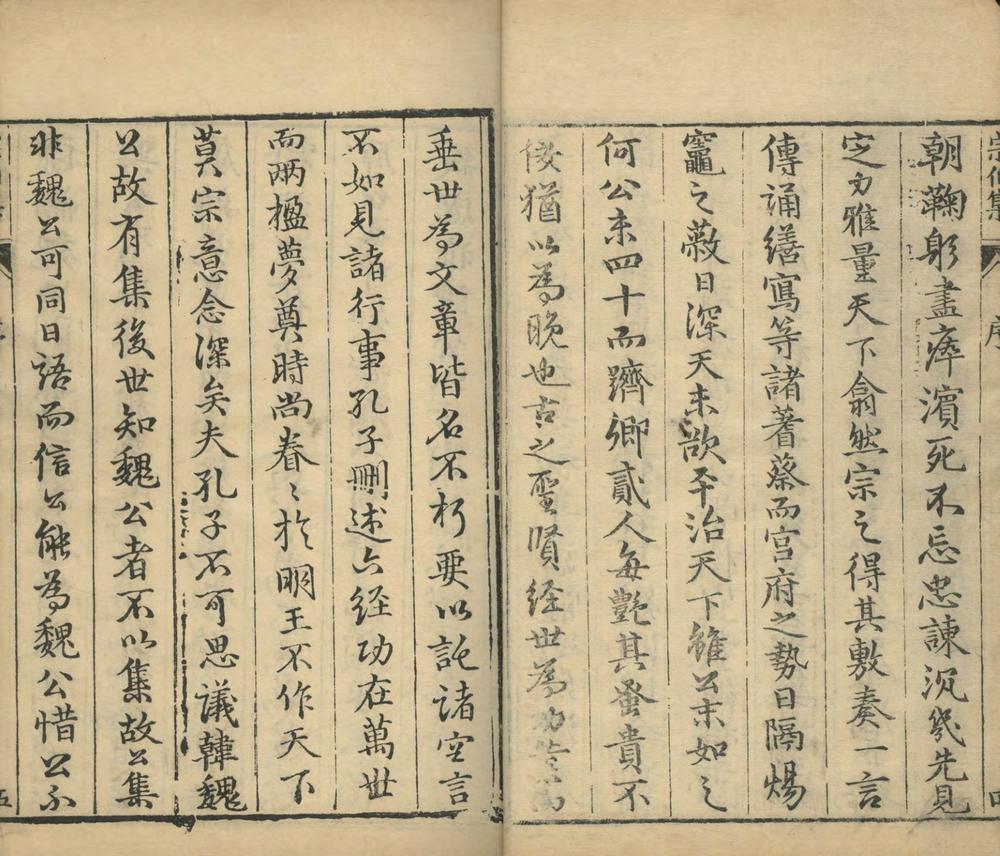 宗伯集
序
朝鞠躬盡瘁濵死不忘忠諫沉幾先見
定力雅量天下翕然宗之得其敷奏一言
傳誦繕寫等諸蓍蔡而宫府之勢日隔煬
竈之蔽日深天未欲平治天下雖公末如之
何公未四十而躋卿貳人每艷其蚤貴不
侫猶以為晚也古之聖賢经世為功
垂世為文章皆名不朽要以託諸空言
不如見諸行事孔子刪述六经功在萬世
而兩楹夢奠時尚眷〻扵明王不作天下
莫宗意念深矣夫孔子不可思議韓魏
公故有集後世知魏公者不以集故公集
非魏公可同日語而信公能為魏公惜公不
五